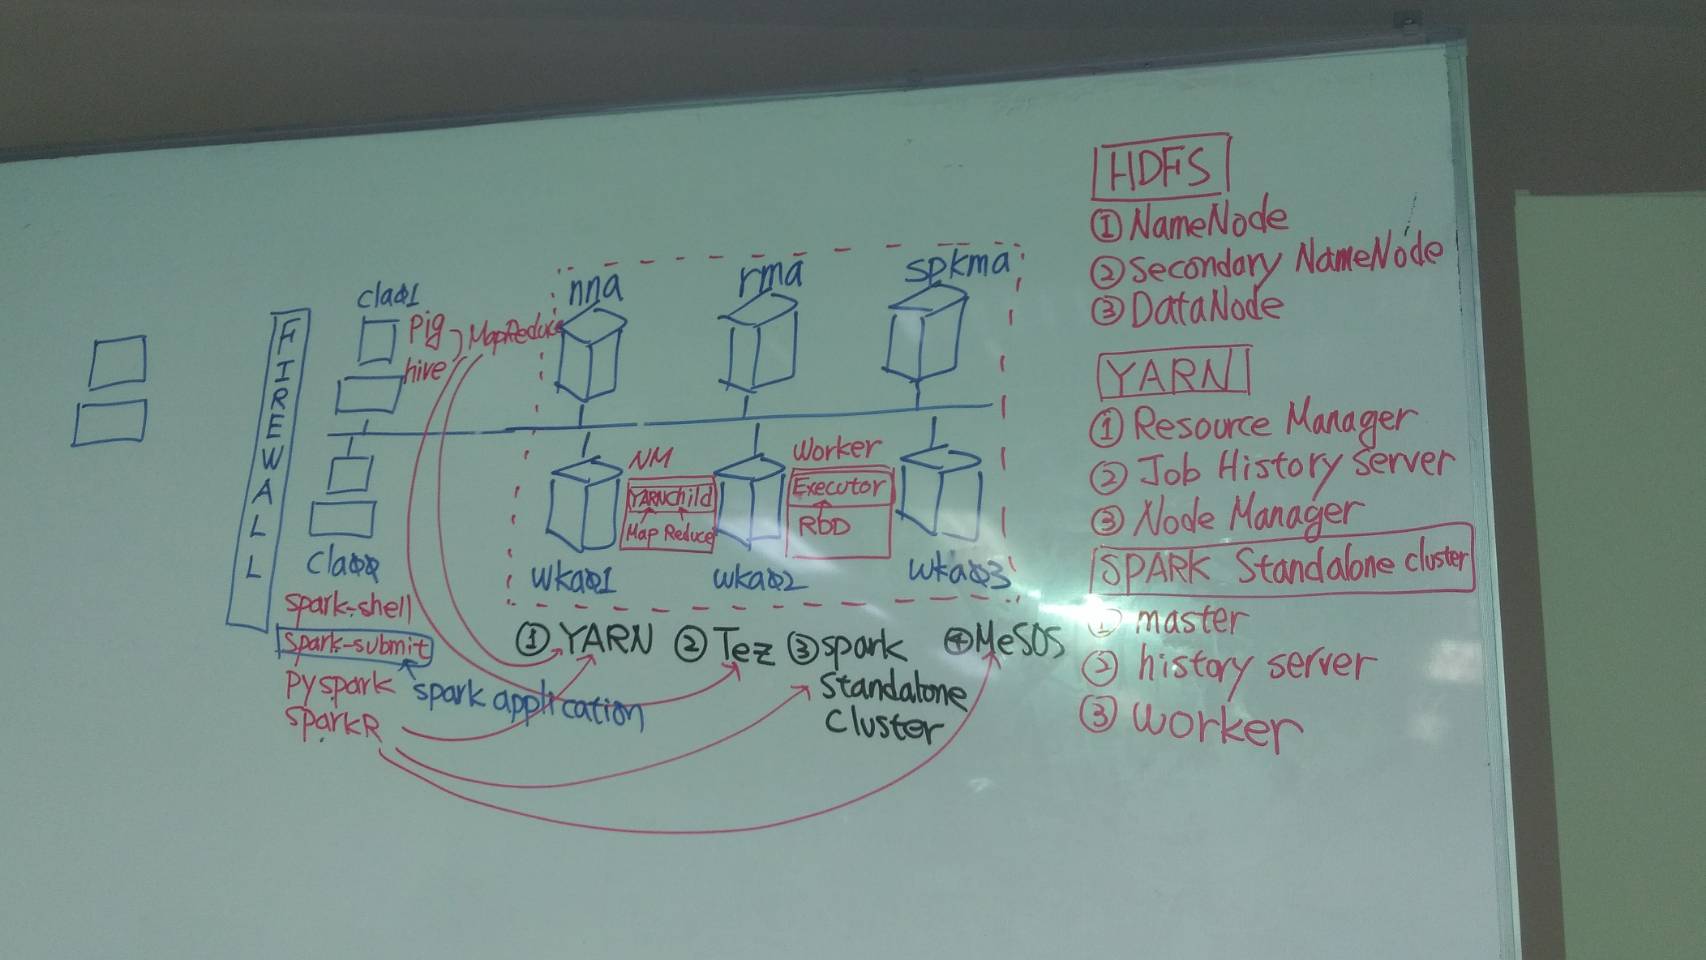 FIREWALL
cla01
Pig
hive
MapReduce
nna
rma
spkma
NM
YARNchild
Map Reduce
Worker
Executor
RDD
wka01
wka02
wka03
spark-shell
Spark-submit
Pyspark
SparkR
spark application
① YARN
② Tez
③ spark
Standalone
Cluster
④ MeSOS
HDFS
① NameNode
② Secondary NameNode
③ DataNode
YARN
① Resource Manager
② Job History Server
③ Node Manager
SPARK Standalone cluster
① master
② history server
③ worker